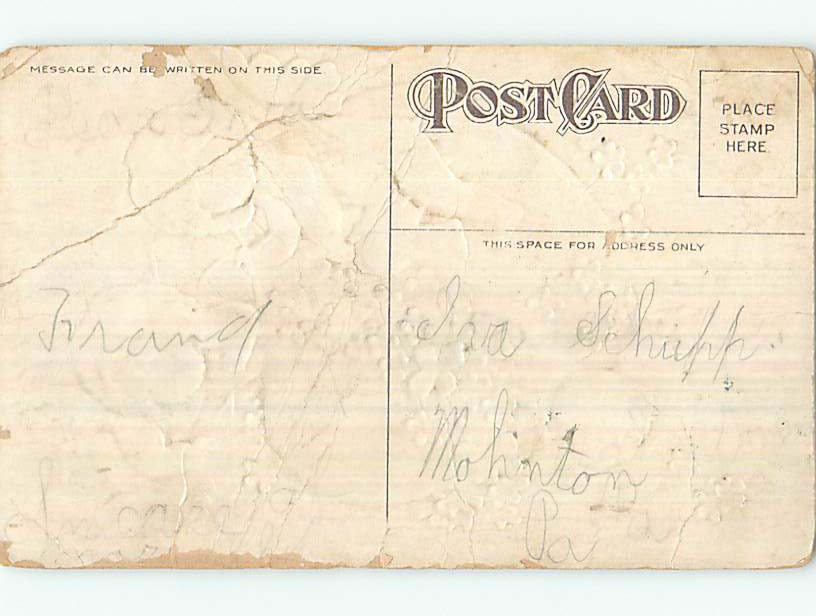 MESSAGE CAN BE WRITTEN ON THIS SIDE
POST CARD
PLACE
STAMP
HERE
THIS SPACE FOR ADDRESS ONLY
Iva Schupp.
Mohnton
Pa